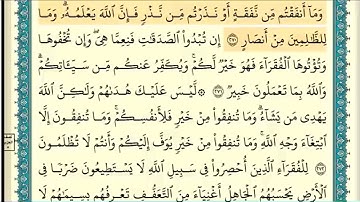 وَمَآ أَنفَقْتُم مِّن نَّفَقَةٍ أَوْ نَذَرْتُم مِّن نَّذْرٍ فَإِنَّ ٱللَّهَ يَعْلَمُهُۥ ۗ وَمَا
لِلظَّٰلِمِينَ مِنْ أَنصَارٍ ٢٧٠ إِن تُبْدُوا۟ ٱلصَّدَقَٰتِ فَنِعِمَّا هِىَ ۖ وَإِن تُخْفُوهَا
وَتُؤْتُوهَا ٱلْفُقَرَآءَ فَهُوَ خَيْرٌ لَّكُمْ ۚ وَيُكَفِّرُ عَنكُم مِّن سَيِّـَٔاتِكُمْ ۗ
وَٱللَّهُ بِمَا تَعْمَلُونَ خَبِيرٌ ٢٧١ ۞ لَّيْسَ عَلَيْكَ هُدَىٰهُمْ وَلَٰكِنَّ ٱللَّهَ
يَهْدِى مَن يَشَآءُ ۗ وَمَا تُنفِقُوا۟ مِنْ خَيْرٍ فَلِأَنفُسِكُمْ ۚ وَمَا تُنفِقُونَ إِلَّا
ٱبْتِغَآءَ وَجْهِ ٱللَّهِ ۚ وَمَا تُنفِقُوا۟ مِنْ خَيْرٍ يُوَفَّ إِلَيْكُمْ وَأَنتُمْ لَا تُظْلَمُونَ ٢٧٢
لِلْفُقَرَآءِ ٱلَّذِينَ أُحْصِرُوا۟ فِى سَبِيلِ ٱللَّهِ لَا يَسْتَطِيعُونَ ضَرْبًا فِى
ٱلْأَرْضِ يَحْسَبُهُمُ ٱلْجَاهِلُ أَغْنِيَآءَ مِنَ ٱلتَّعَفُّفِ تَعْرِفُهُم بِسِيمَٰهُمْ لَا